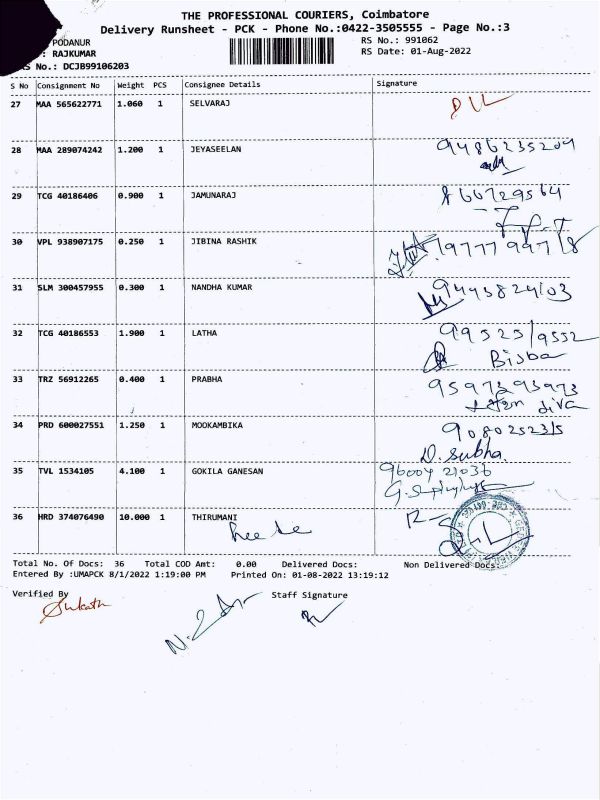 THE PROFESSIONAL COURIERS, Coimbatore
Delivery Runsheet - PCK - Phone No.:0422-3505555 - Page No.:3
PODANUR
: RAJKUMAR
S No.: DCJB99106203
RS No.: 991062
RS Date: 01-Aug-2022
S No Consignment No Weight PCS Consignee Details Signature
27 MAA 565622771 1.060 1 SELVARAJ
28 MAA 289074242 1.200 1 JEYASEELAN 9486235209
29 TCG 40186406 0.900 1 JAMUNARAJ
30 VPL 938907175 0.250 1 JIBINA RASHIK
31 SLM 300457955 0.300 1 NANDHA KUMAR 9443824103
32 TCG 40186553 1.900 1 LATHA 99525/9552
Bisba
33 TRZ 56912265 0.400 1 PRABHA 9597393973
34 PRD 600027551 1.250 1 MOOKAMBIKA 9080252315
D. Subha
35 TVL 1534105 4.100 1 GOKILA GANESAN 96004 21036
36 HRD 374076490 10.000 1 THIRUMANI
Total No. Of Docs: 36 Total COD Amt: 0.00 Delivered Docs: Non Delivered Docs:
Entered By :UMAPCK 8/1/2022 1:19:00 PM Printed On: 01-08-2022 13:19:12
Verified By Staff Signature